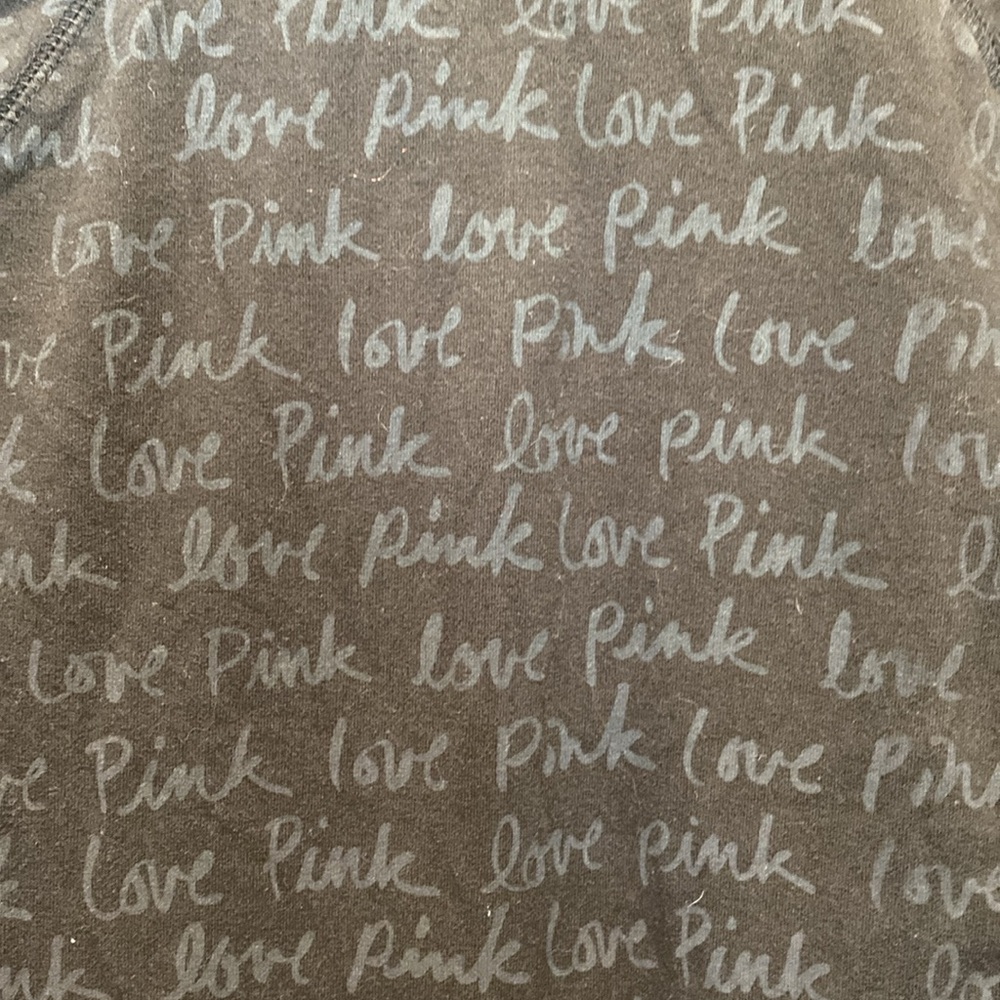 Love Pink love Pink
love pink Love Pink
Love Pink love Pink love
Pink love Pink Love
Love Pink love pink
love pink Love Pink
Love Pink love Pink love
Pink love Pink Love
Love Pink love pink love
love pink Love Pink